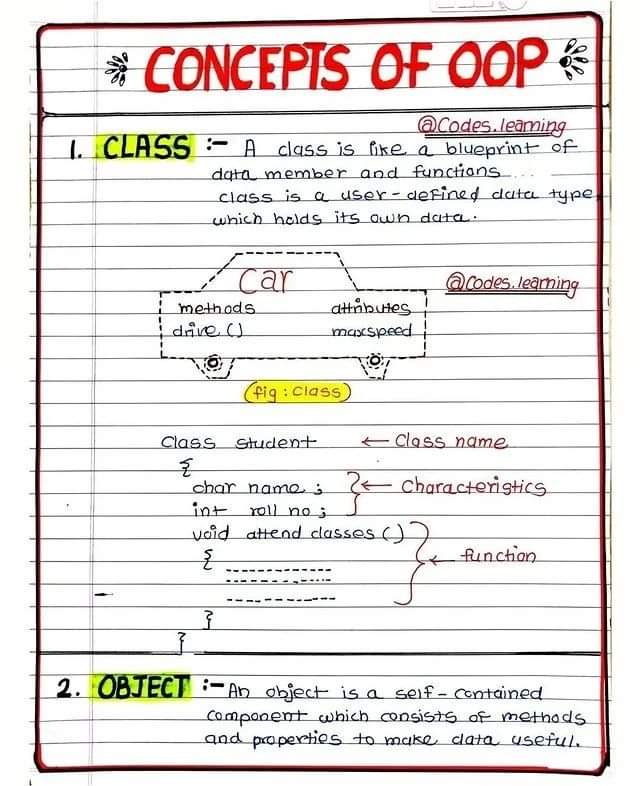 CONCEPTS OF OOP
@Codes.learning
1. CLASS :- A class is like a blueprint of
data member and functions...
class is a user-defined data type,
which holds its own data.
Car
@Codes.learning
methods attributes
drive () maxspeed
(fig : Class)
Class student ← Class name
{
char name ; } ← Characteristics
int roll no ;
void attend classes () } ← function
{
}
}
2. OBJECT :- An object is a self-contained
component which consists of methods
and properties to make data useful.